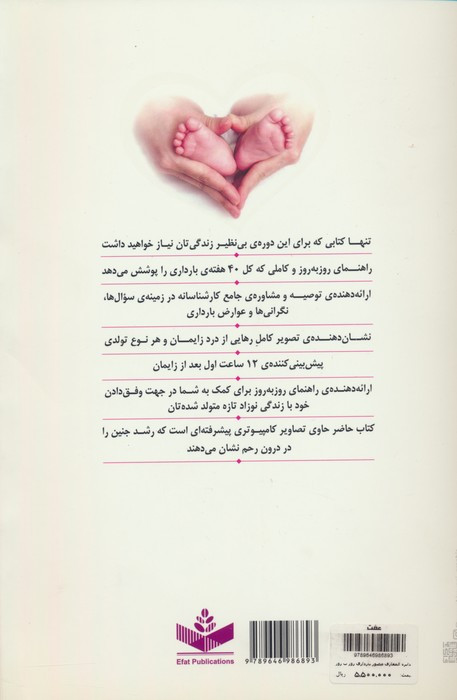 تنها کتابی که برای این دوره‌ی بی‌نظیر زندگی‌تان نیاز خواهید داشت
راهنمای روزبه‌روز و کاملی که کل ۴۰ هفته‌ی بارداری را پوشش می‌دهد
ارائه‌دهنده‌ی توصیه و مشاوره‌ی جامع کارشناسانه در زمینه‌ی سؤال‌ها،
نگرانی‌ها و عوارض بارداری
نشان‌دهنده‌ی تصویر کاملِ رهایی از درد زایمان و هر نوع تولدی
پیش‌بینی‌کننده‌ی ۱۲ ساعت اول بعد از زایمان
ارائه‌دهنده‌ی راهنمای روزبه‌روز برای کمک به شما در جهت وفق‌دادن
خود با زندگی نوزاد تازه متولد شده‌تان
کتاب حاضر حاوی تصاویر کامپیوتری پیشرفته‌ای است که رشد جنین را
در درون رحم نشان می‌دهند
Efat Publications
9 789646 986893
عفت
9789646986893
۵,۵۰۰,۰۰۰ ریال